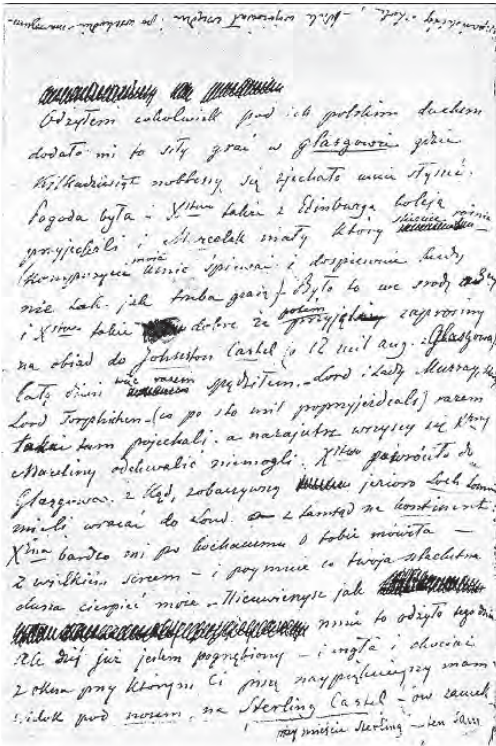 Odżyłem cokolwiek pod ich polskim duchem
dodało mi to siły grać w Glasgowie gdzie
Kilkadziesiąt nobbessy się zjechało mnie słyszeć.
Pogoda była – i Xstwo także z Edinburga koleją
przyjechali i Marcelek mały który ślicznie rośnie
(kompozycye moie umie śpiewać i dospiewuie kiedy
nie tak jak trzeba graią) – Było to we srodę o 3ciej
i Xstwo takie dobre że potem przyjęli zaprosiny
na obiad do Johnston Castel (o 12 mil ang. Glasgowa)
cały dzień więc razem spędziłem – Lord i Lady Murray,
Lord Torphichen – (co po sto mil poprzyjeżdcali) razem
także tam pojechali. a nazajutrz wszyscy się Xżny
Marceliny odchwalić niemogli. Xstwo powróciło do
Glasgowa. z kąd, zobaczywszy jezioro Loch Lomond
mieli wracać do Lond. a z tamtąd na kontinent:
Xżna bardzo mi po kochanemu o tobie mówiła –
z wielkiem sercem – i poymuie co twoja szlachetna
dusza cierpieć może – Nieuwierzysz jak
mnie to odżyło tego dnia
Ale dziś już jestem pognębiony – i mgła i chociaż
z okna przy którym Ci piszę nayprzepięknieyszy mam
widok pod nosem, na Sterling Castel – ów zamek
przy mieście Sterling – ten sam